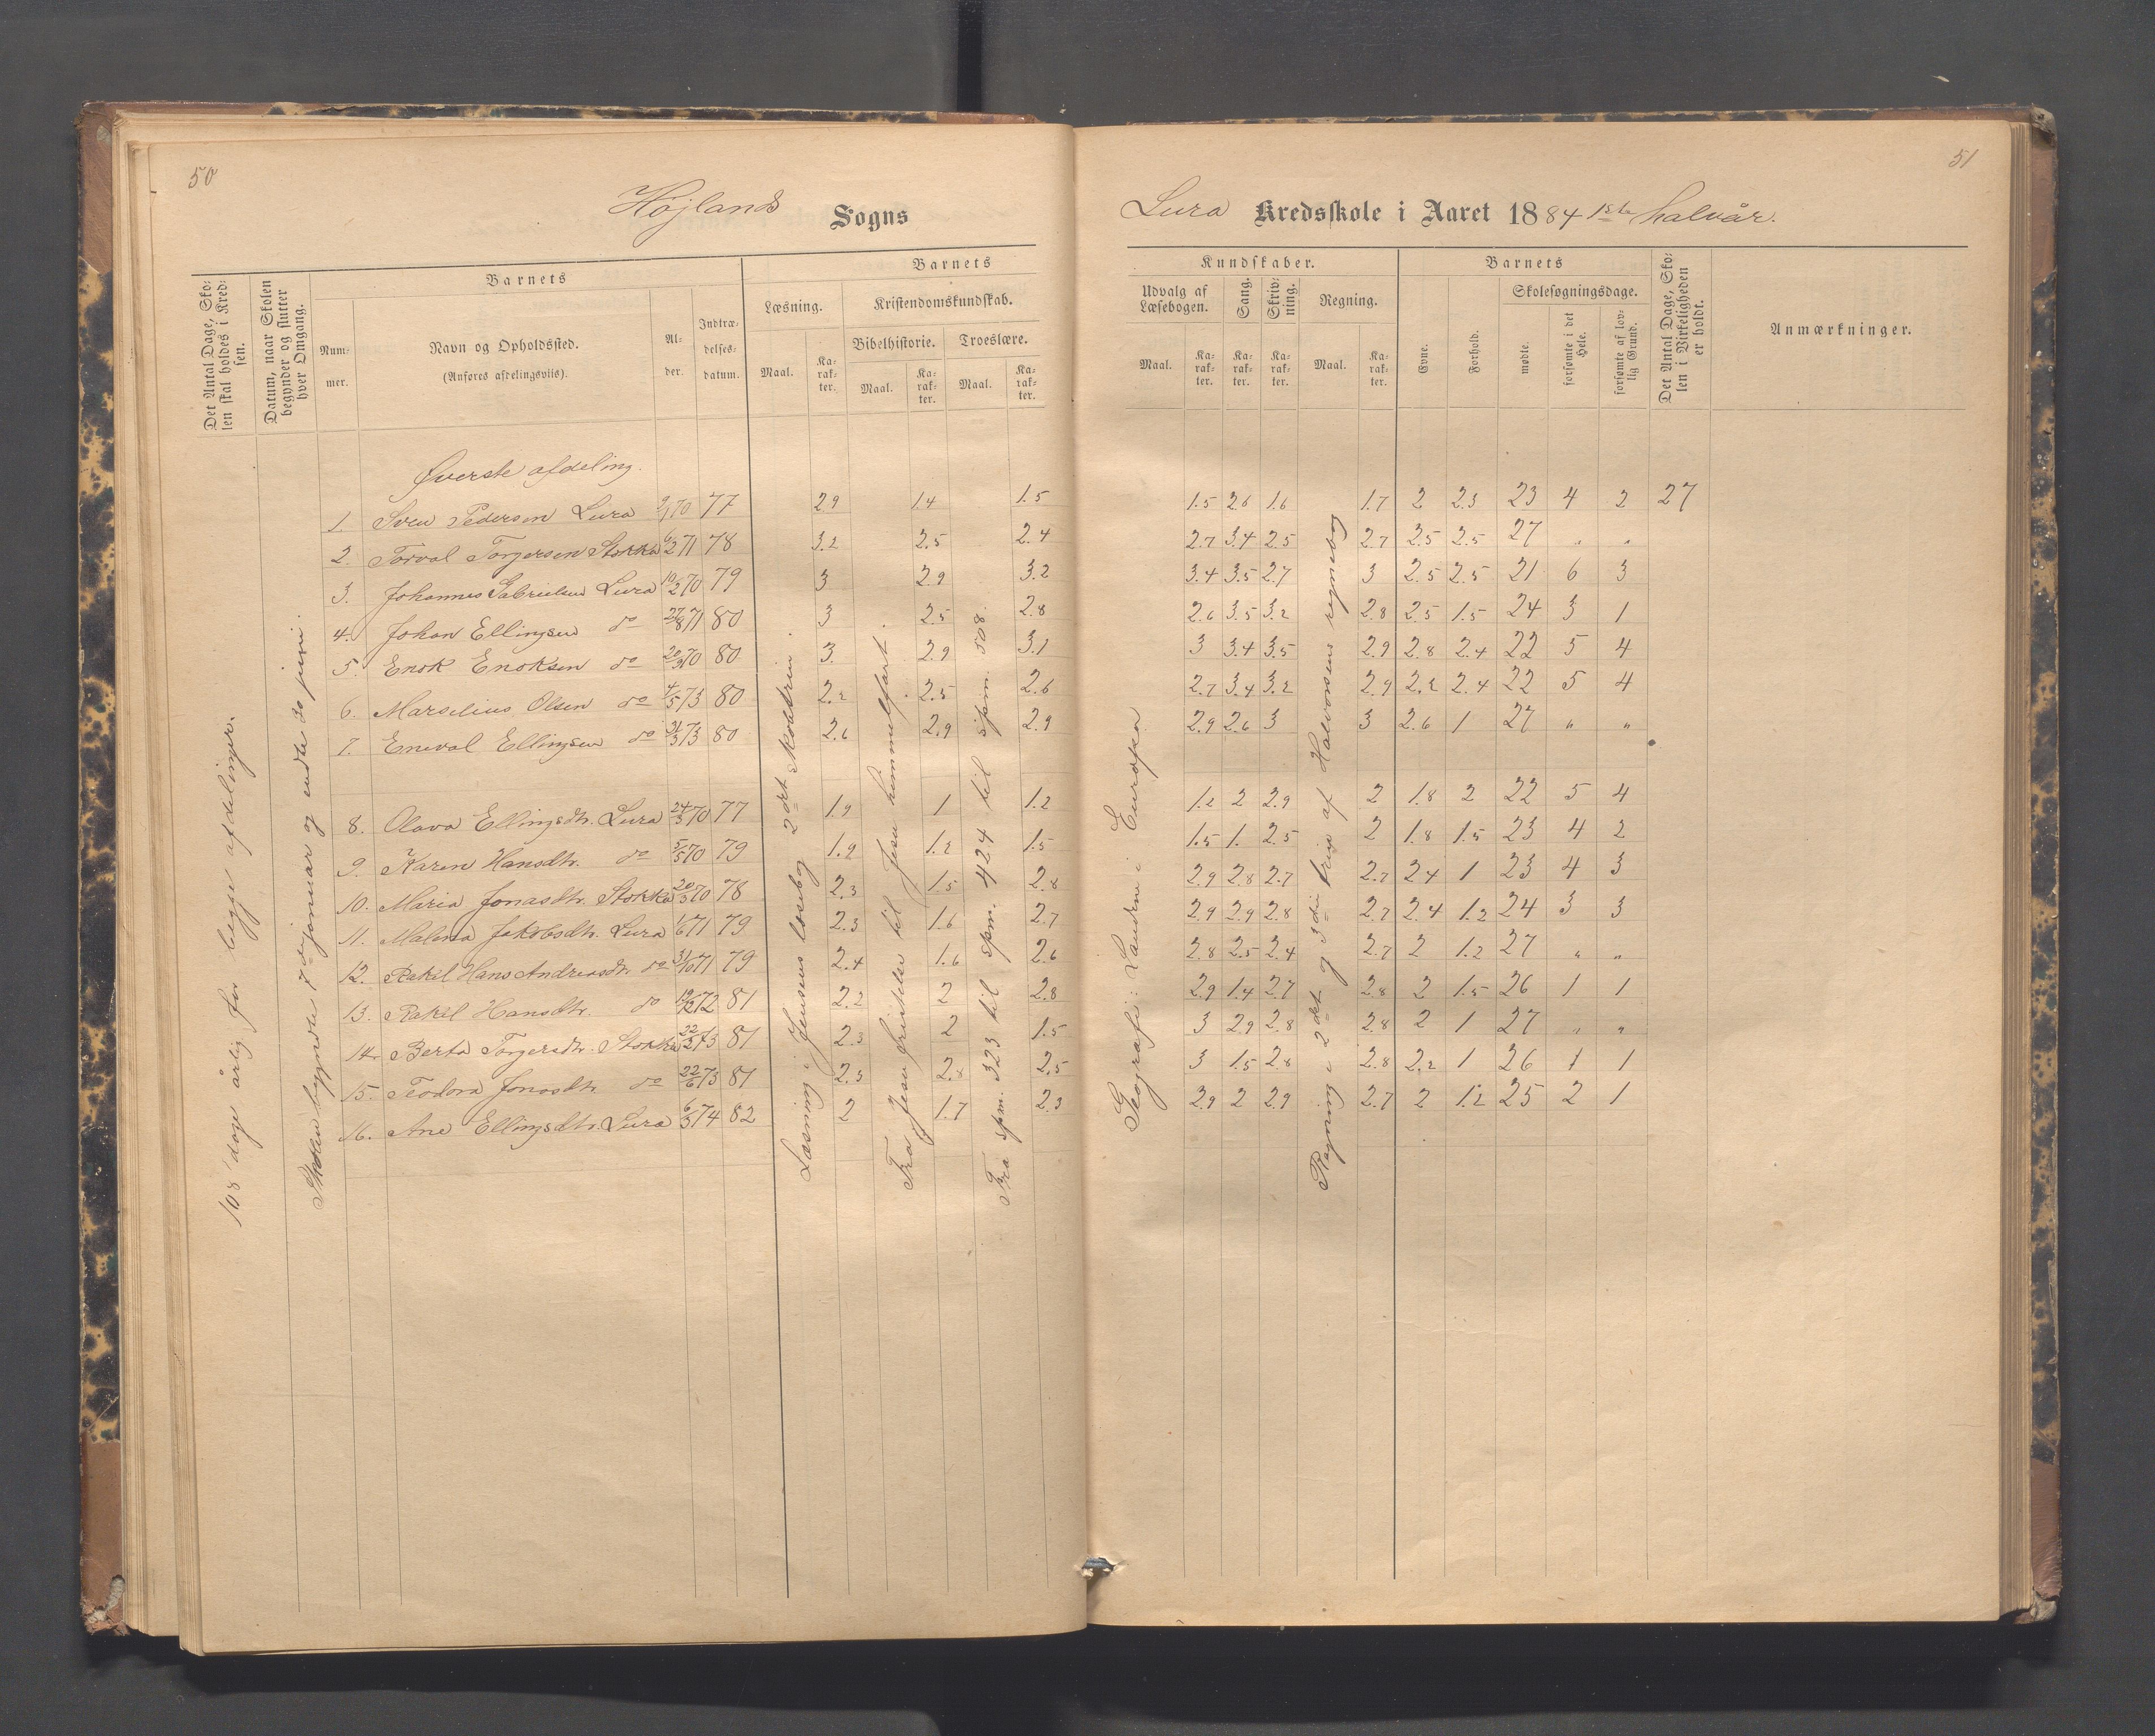 50
Højlands Sogns
Det Antal Dage, Skolen skal holdes i Kredsen.
Datum, naar Skolen begynder og slutter hver Omgang.
Barnets
Nummer.
Navn og Opholdssted.
(Anføres afdelingsviis).
Alder.
Indtrædelsesdatum.
Barnets
Læsning.
Kristendomskundskab.
Bibelhistorie.
Troeslære.
Maal.
Karakter.
Maal.
Karakter.
Maal.
Karakter.
108 dage årlig for begge afdelinger.
Skolen begyndte 7de januar og endte 20 juni.
Øverste afdeling.
1. Sven Pedersen Lura 2/1 70 77 2.9 1.4 1.5
2. Torval Torgersen Stokka 6/2 71 78 3.2 2.5 2.4
3. Johannes Gabrielsen Lura 10/2 70 79 3 2.9 3.2
4. Johan Ellingsen do 27/8 71 80 3 2.5 2.8
5. Enok Enoksen do 20/3 70 80 3. 2.9 3.1
6. Marselius Olsen do 4/5 73 80 2.2 2.5 2.6
7. Eneval Ellingsen do 31/3 73 80 2.6 2.9 2.9
8. Olava Ellingsdtr. Lura 24/3 70 77 1.9 1 1.2
9. Karen Hansdtr. do 5/5 70 79 1.9 1.2 1.5
10. Maria Jonasdtr. Stokka 20/3 70 78 2.3 1.5 2.8
11. Malena Jakobsdtr. Lura 1/6 71 79 2.3 1.6 2.7
12. Rakel Hans Andreasdtr. do 31/10 71 79 2.4 1.6 2.6
13. Rakel Hansdtr. do 19/12 72 81 2.2 2 2.8
14. Berta Torgersdtr. Stokka 22/2 73 81 2.3 2 1.5
15. Teodora Jonasdtr. do 22/6 73 81 2.3 2.8 2.5
16. Ane Ellingsdtr. Lura 6/3 74 82 2 1.7 2.3
Læsning i Jensens læsebog 2det skoletrin.
Fra Jesu fristelse til Jesu himmelfart.
Fra spm. 323 til spm. 424 til spm. 508.
51
Lura Kredsskole i Aaret 1884 1ste halvår.
Kundskaber.
Udvalg af Læsebogen.
Sang.
Skrivning.
Regning.
Maal.
Karakter.
Karakter.
Karakter.
Maal.
Karakter.
Barnets
Evne.
Forhold.
Skolesøgningsdage.
mødte.
forsømte i det Hele.
forsømte af lovlig Grund.
Det Antal Dage, Skolen i Virkeligheden er holdt.
Anmærkninger.
1.5 2.6 1.6 1.7 2 2.3 23 4 2 27
2.7 3.4 2.5 2.7 2.5 2.5 27 " "
3.4 3.5 2.7 3 2.5 2.5 21 6 3
2.6 3.5 3.2 2.8 2.5 1.5 24 3 1
3 3.4 3.5 2.9 2.8 2.4 22 5 4
2.7 3.4 3.2 2.9 2.2 2.4 22 5 4
2.9 2.6 3 3 2.6 1 27 " "
1.2 2 2.9 2 1.8 2 22 5 4
1.5 1. 2.5 2 1.8 1.5 23 4 2
2.9 2.8 2.7 2.7 2.4 1 23 4 3
2.9 2.9 2.8 2.7 2.4 1.2 24 3 3
2.8 2.5 2.4 2.7 2 1.2 27 " "
2.9 1.4 2.7 2.8 2 1.5 26 1 1
3 2.9 2.8 2.8 2 1 27 " "
3 1.5 2.8 2.8 2.2 1 26 1 1
2.9 2 2.9 2.7 2 1.2 25 2 1
Geografi: Landene i Europa
Regning i 2det og 3die trin af Halvorsens regnebog